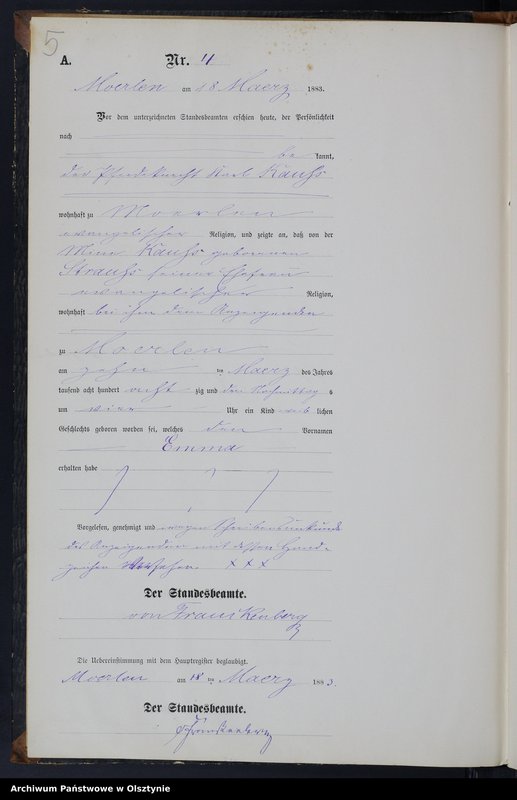 5
A. Nr. 4
Moerlen am 18 Maerz 1883.
Vor dem unterzeichneten Standesbeamten erschien heute, der Persönlichkeit
nach
be kannt,
der Pferdeknecht Karl Kauhs
wohnhaft zu Moerlen
evangelischer Religion, und zeigte an, daß von der
Kauhs geborenen
Strauhs seiner Ehefrau
evangelischer Religion,
wohnhaft bei ihm dem Anzeigenden
zu Moerlen
am zehn ten Maerz des Jahres
tausend acht hundert acht zig und drei Nachmittag s
um vier Uhr ein Kind weib lichen
Geschlechts geboren worden sei, welches den Vornamen
Emma
erhalten habe
Vorgelesen, genehmigt und wegen Schreibensunkunde
des Anzeigenden mit dessen Hand-
zeichen versehen. XXX
Der Standesbeamte.
von Frankenberg
Die Uebereinstimmung mit dem Hauptregister beglaubigt.
Moerlen am 18 ten Maerz 1883
Der Standesbeamte.
vFrankenberg
Archiwum Państwowe w Olsztynie